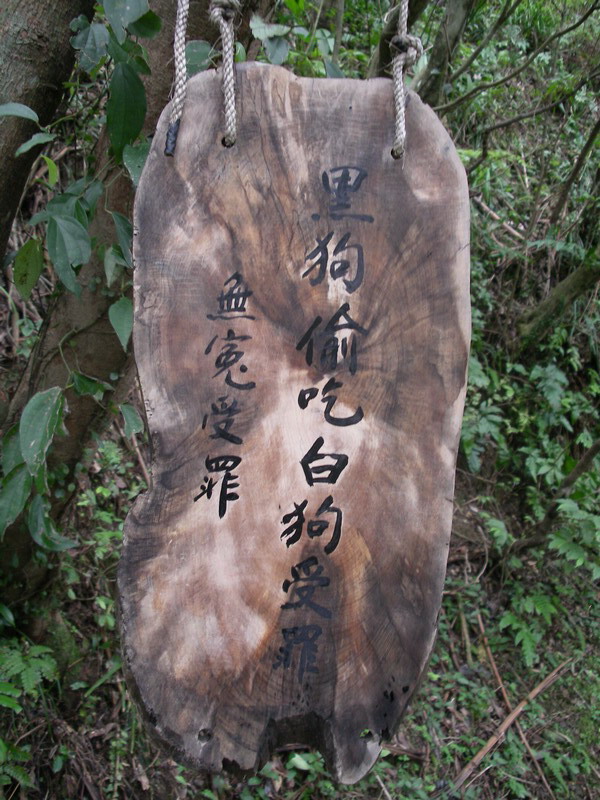 黑狗偷吃白狗受罪
無冤受罪